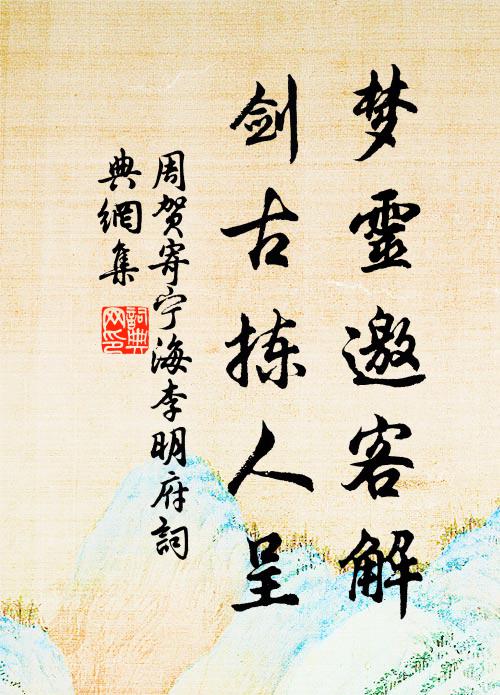 梦靈邀客解
剑古拣人呈
周贺寄宁海李明府詞
典網集
詞典
网印